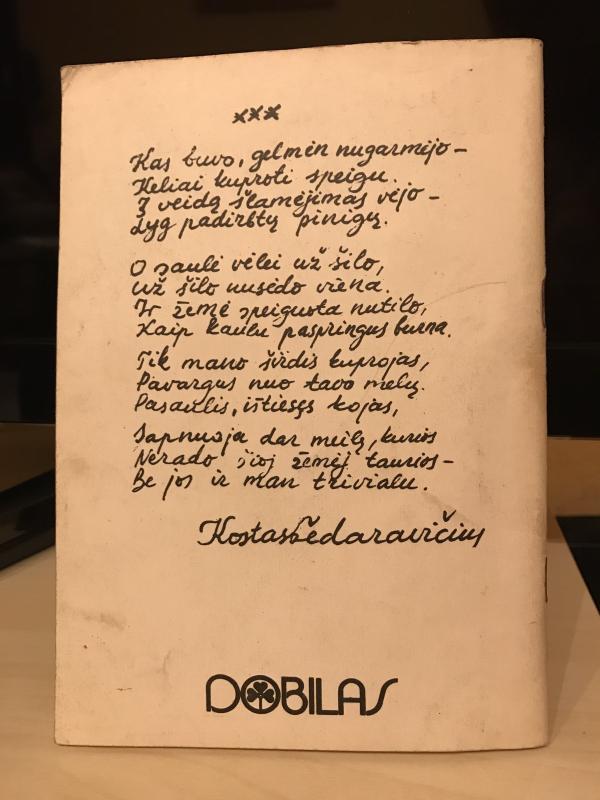 xxx
Kas buvo, gelmėn nugarmėjo –
Keliai kuproti speigu.
Į veidą šlamėjimas vėjo –
Lyg padirbtų pinigų.
O saulė vėlei už šilo,
Už šilo nusėdo viena.
Ir žemė speiguota nutilo,
Kaip kaulu paspringus burna.
Tik mano širdis kuprojas,
Pavargus nuo tavo melų.
Pasaulis, ištiesęs kojas,
Sapnuoja dar meilę, kurios
Nerado šioj žemėj taurios –
Be jos ir man trivialu.
Kostas Fedaravičius
DOBILAS